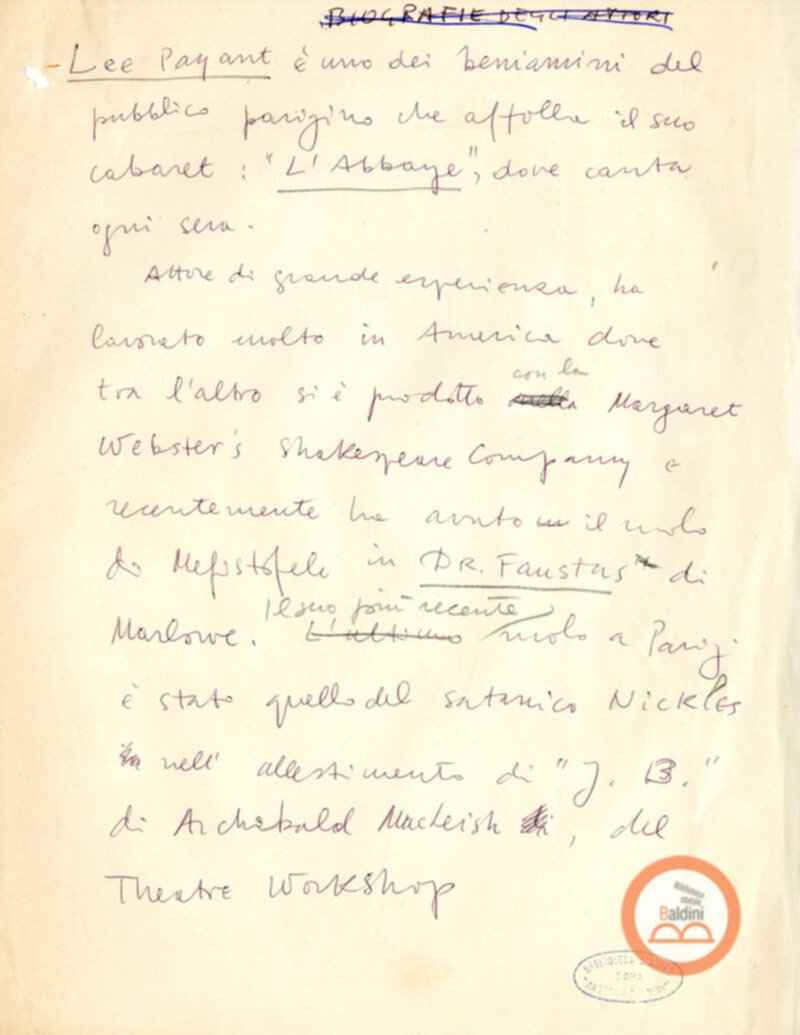 BIOGRAFIE DEGLI ATTORI
- Lee Payant è uno dei beniamini del
pubblico parigino che affolla il suo
cabaret : "L'Abbaye", dove canta
ogni sera.
Attore di grande esperienza, ha
lavorato molto in America dove
tra l'altro si è prodotto con la Margaret
Webster's Shakespeare Company e
recentemente ha avuto il ruolo
di Mefistofele in DR. Faustus di
Marlowe. Il suo più recente
L'ultimo ruolo a Parigi
è stato quello del satanico Nickles
nell' allestimento di "J. B."
di Archibald MacLeish, del
Theatre Workshop
Biblioteca
statale
Baldini
BIBLIOTECA STATALE
ROMA